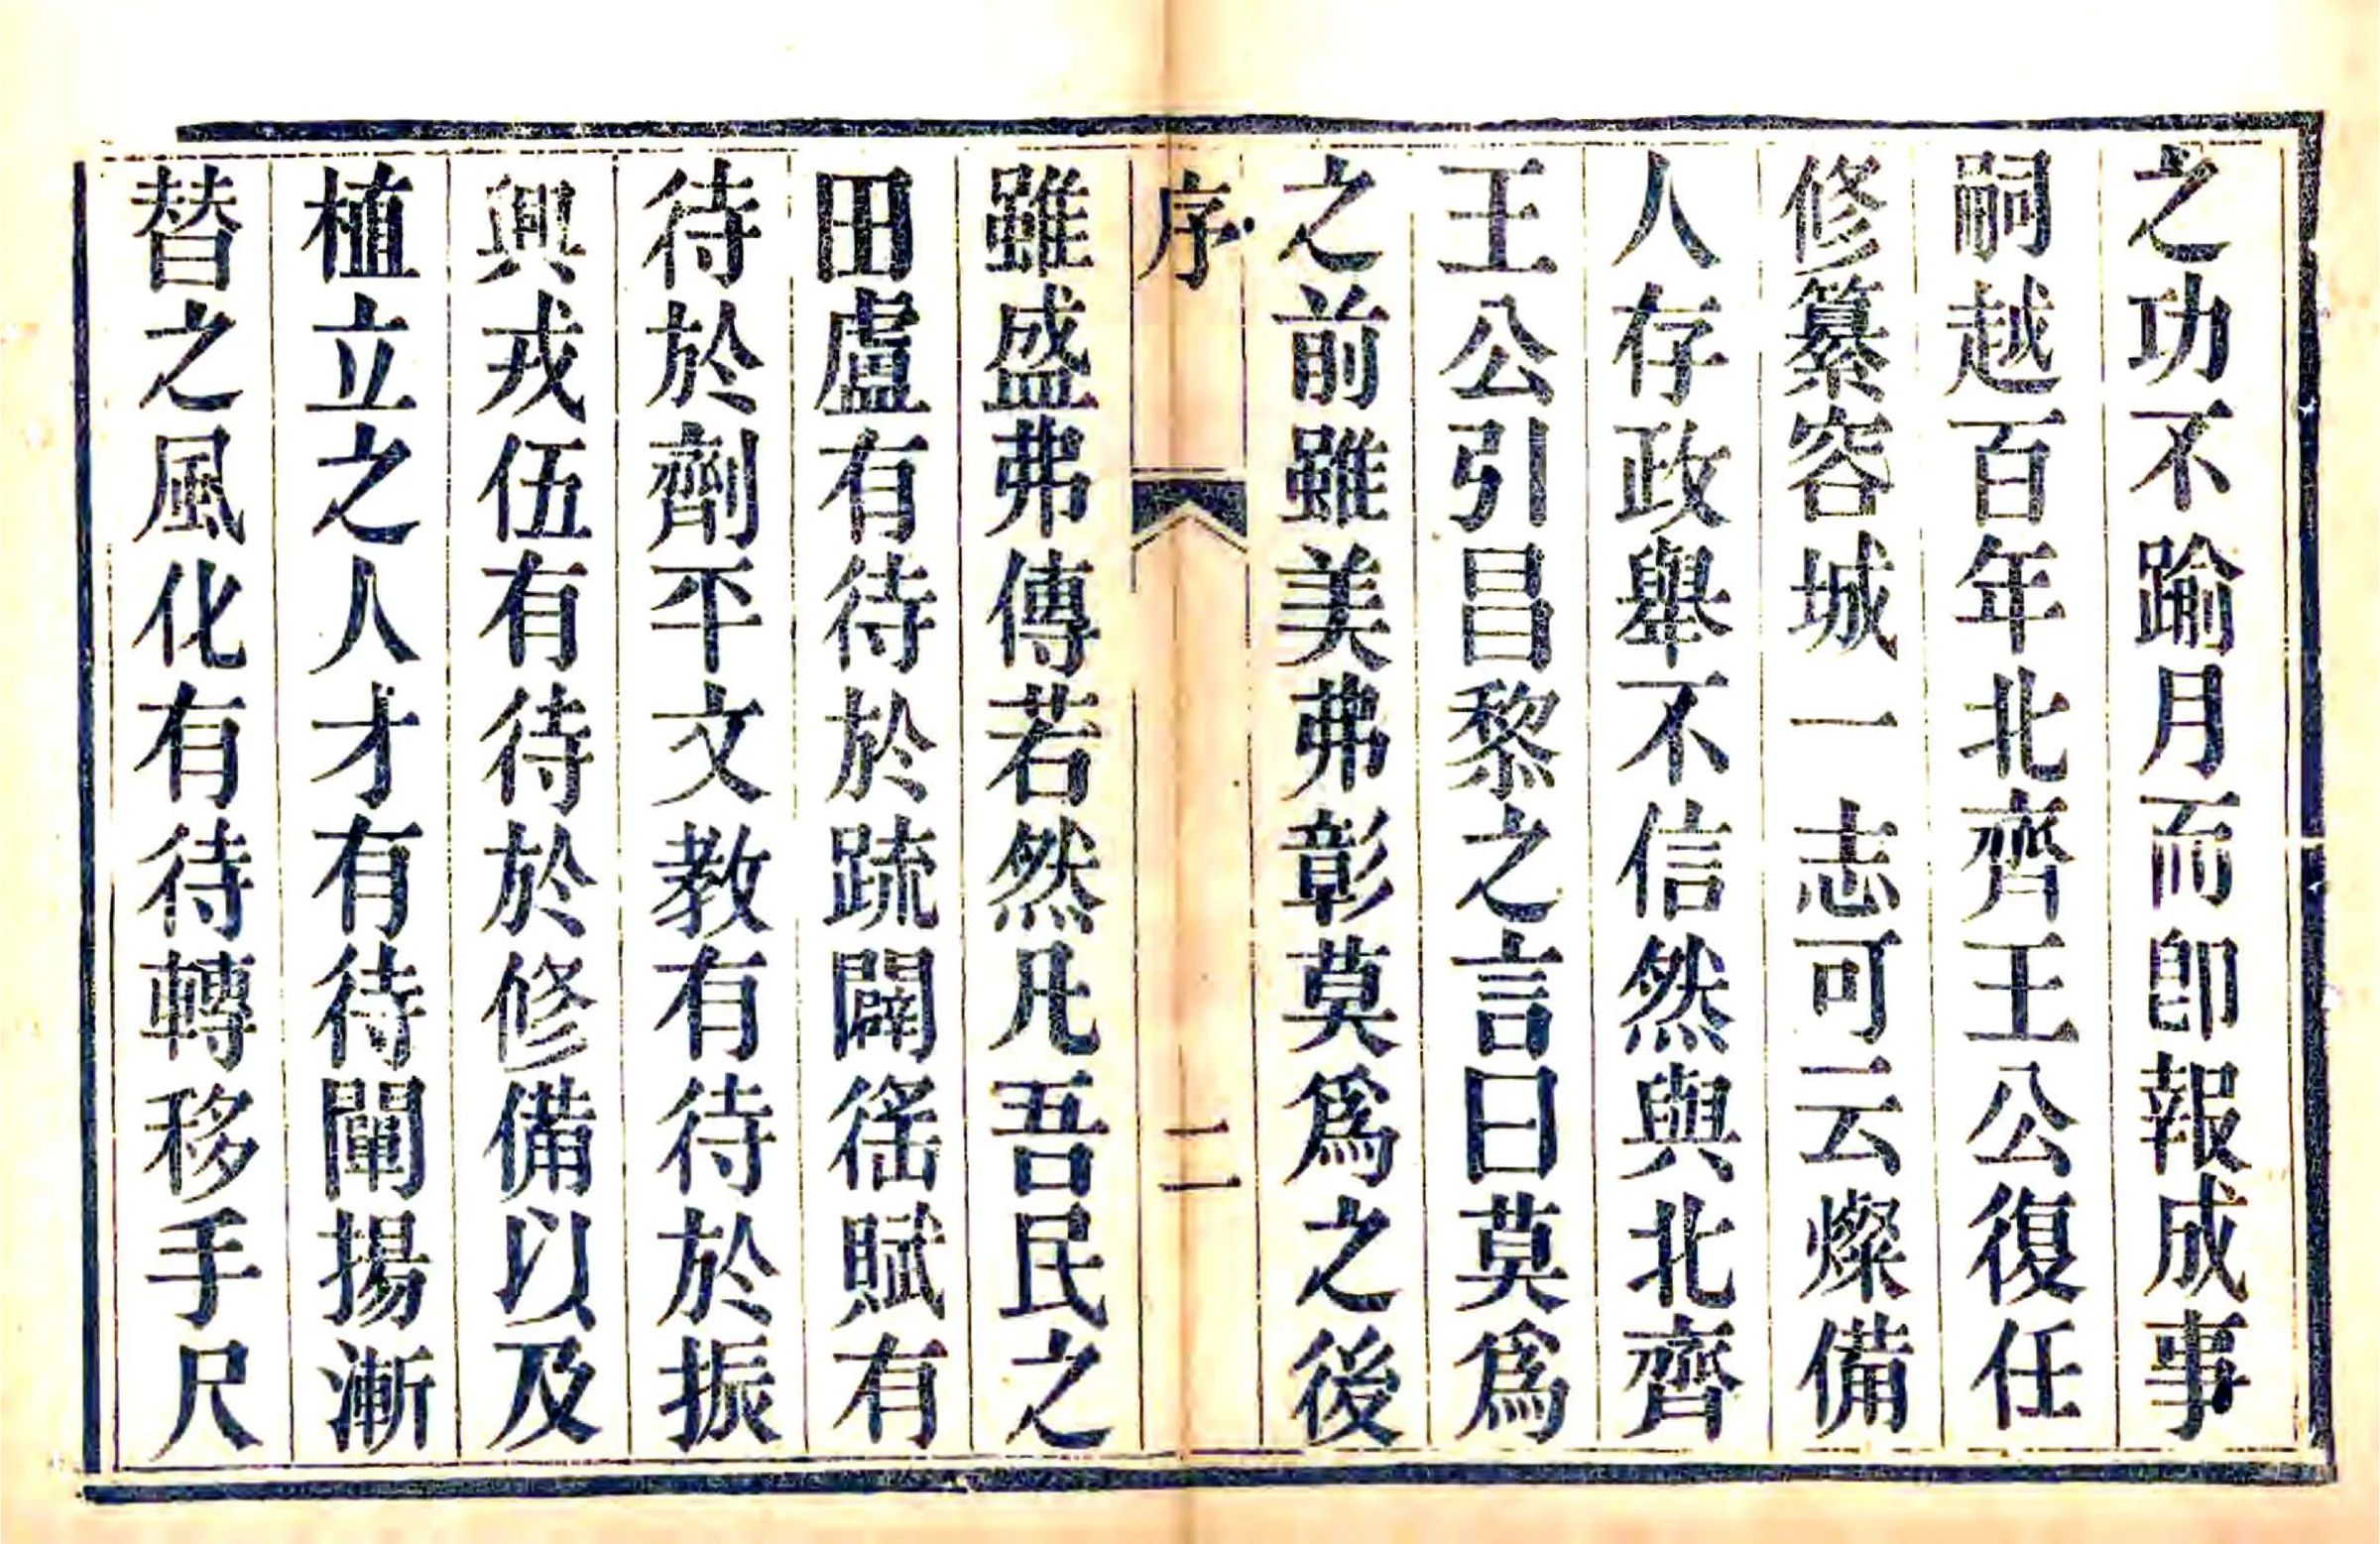 之功不踰月而卽報成事
嗣越百年北齊王公復任
修纂容城一志可云燦備
人存政舉不信然與北齊
王公引昌黎之言曰莫爲
之前雖美弗彰莫爲之後
序
二
雖盛弗傳若然凡吾民之
田盧有待於疏闢徭賦有
待於劑平文教有待於振
興戎伍有待於修備以及
植立之人才有待闡揚漸
替之風化有待轉移手尺